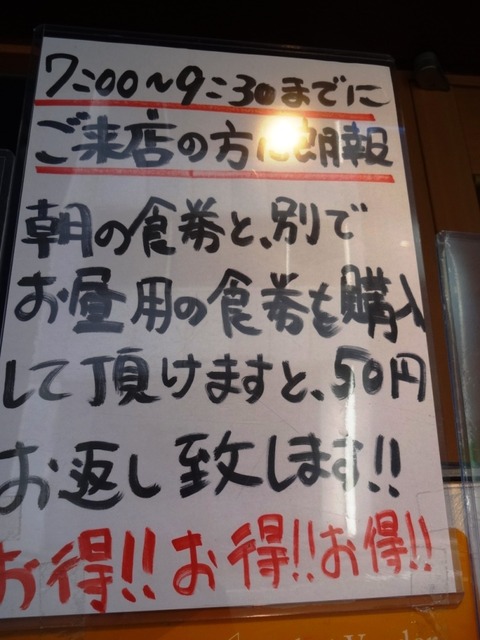 7:00~9:30までに
ご来店の方に朗報
朝の食券と、別で
お昼用の食券も購入
して頂けますと、50円
お返し致します!!
お得!!お得!!お得!!